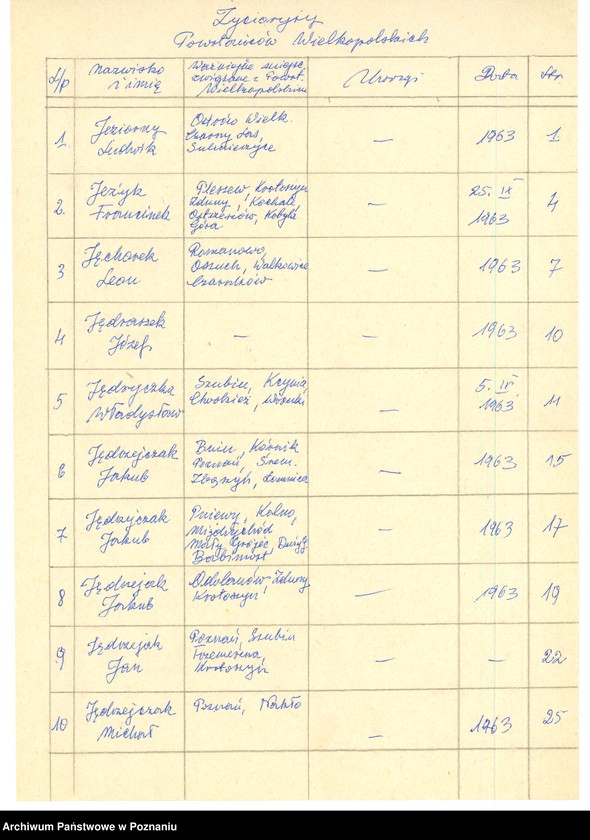 Życiorysy
Powstańców Wielkopolskich
L/p
Nazwisko
i imię
Ważniejsze miejsc.
związane z Powst.
Wielkopolskim
Uwagi
Data
Str.
1.
Jeziorny
Ludwik
Ostrów Wielk.
Czarny Las,
Sulmierzyce
—
1963
1
2.
Jeżyk
Franciszek
Pleszew, Krotoszyn
Zduny, Kochale
Ostrzeszów, Kobyla
Góra
—
25. IX
1963
4
3
Jęchorek
Leon
Romanowo,
Osuch, Walkowice
Czarnków
—
1963
7
4
Jędraszek
Józef
—
—
1963
10
5
Jędryczka
Władysław
Szubin, Kcynia
Chodzież,
—
5. IV
1963
11
6
Jędrzejczak
Jakub
Bnin, Kórnik
Poznań, Śrem.
Zbąszyń, Łomnica
—
1963
15
7
Jędrzejczak
Jakub
Pniewy, Kolno,
Międzychód
Mały Grójec,
Babimost
—
1963
17
8
Jędrzejak
Jakub
Odolanów, Zduny
Krotoszyn
—
1963
19
9
Jędrzejak
Jan
Poznań, Szubin
Trzemeszna,
Krotoszyn
—
—
22
10
Jędrzejczak
Michał
Poznań, Nakło
—
1963
25
Archiwum Państwowe w Poznaniu